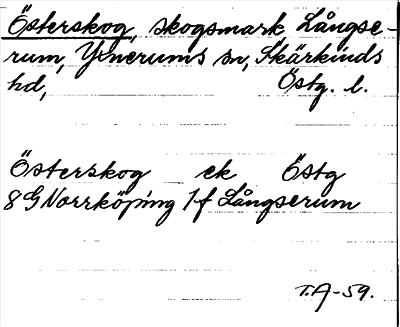 Österskog, skogsmark, Långse-
rum, Yxnerums sn, Skärkinds
hd, Östg. l.
Österskog ek Östg
8G Norrköping 1f Långserum
T.A-59.